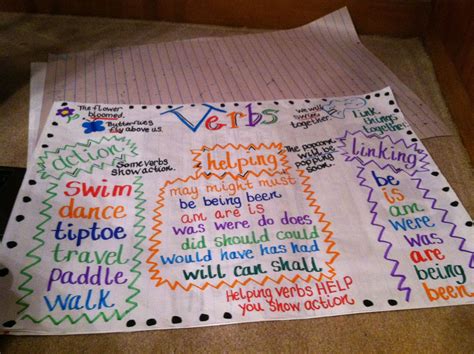 Verbs
The flower
bloomed.
Butterflies
fly above us.
We will
swim
together.
Link
things
together.
action
Some verbs
show action.
swim
dance
tiptoe
travel
paddle
walk
helping
The popcorn
will be
popping
soon.
may might must
be being been
am are is
was were do does
did should could
would have has had
will can shall
Helping verbs HELP
you show action
linking
be
is
am
were
was
are
being
been